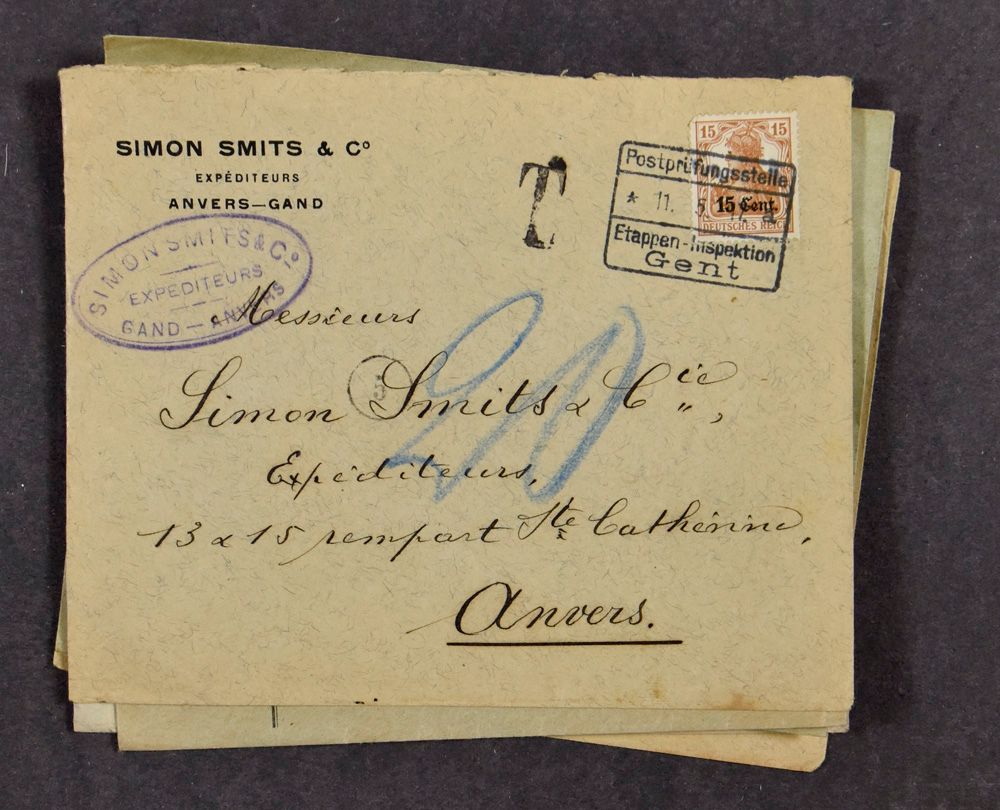 SIMON SMITS & Cº
EXPÉDITEURS
ANVERS—GAND
T
15 15
15 Cent.
DEUTSCHES REICH
Postprüfungsstelle
* 11. 5. a
Etappen-Inspektion
Gent
SIMON SMITS & Cº
EXPÉDITEURS
GAND — ANVERS
Messieurs
Simon Smits & Cie,
Expéditeurs,
13 & 15 rempart Ste Cathérine,
Anvers.
20